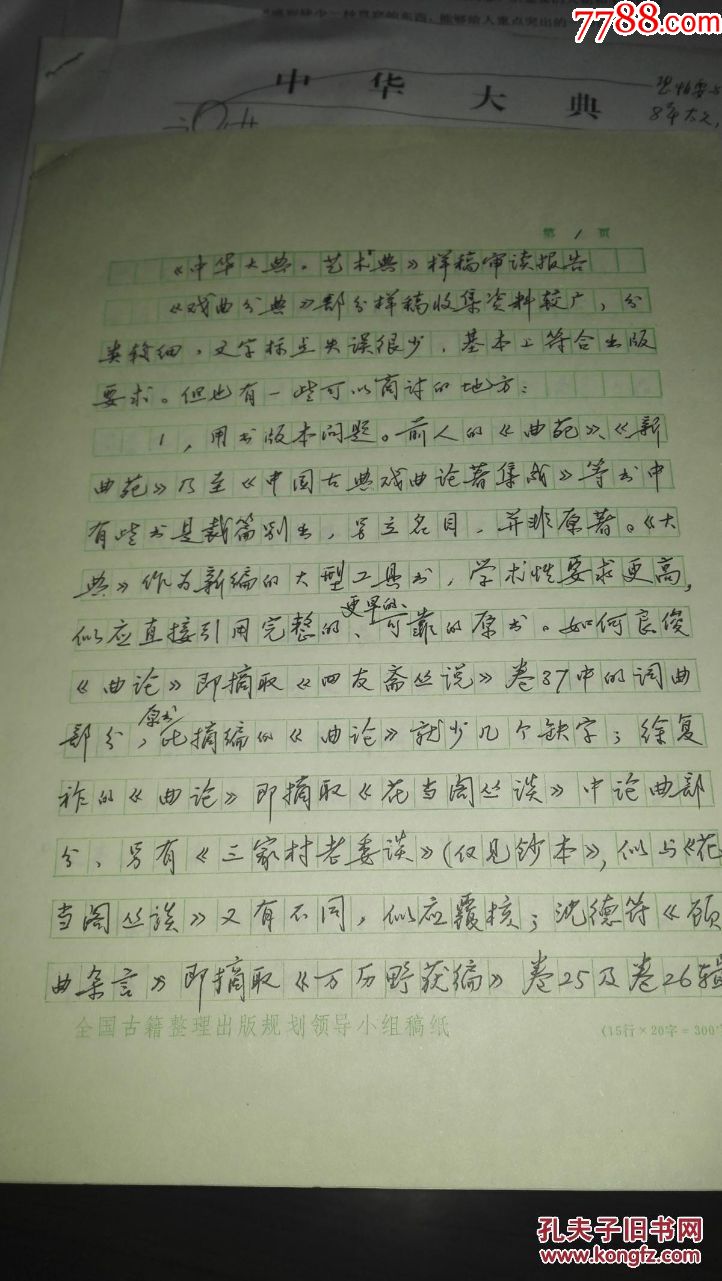 7788.com
中华大典
8年
第1页
《中华大典·艺术典》样稿审读报告
《戏曲分典》部分样稿收集资料较广，分
类较细，文字标点失误很少，基本上符合出版
要求。但也有一些可以商讨的地方：
1，用书版本问题。前人的《曲苑》、《新
曲苑》乃至《中国古典戏曲论著集成》等书中
有些书是裁篇别出，另立名目，并非原著。《大
典》作为新编的大型工具书，学术性要求更高，
更早的、
似应直接引用完整的、可靠的原书。如何良俊
《曲论》即摘取《四友斋丛说》卷37中的词曲
原书
部分，比摘编的《曲论》就少几个缺字；徐复
祚的《曲论》即摘取《花当阁丛谈》中论曲部
分、另有《三家村老委谈》(仅见钞本)，似与《花
当阁丛谈》又有不同，似应覆核；沈德符《顾
曲杂言》即摘取《万历野获编》卷25及卷26辑
全国古籍整理出版规划领导小组稿纸
(15行×20字=300
孔夫子旧书网
www.kongfz.com